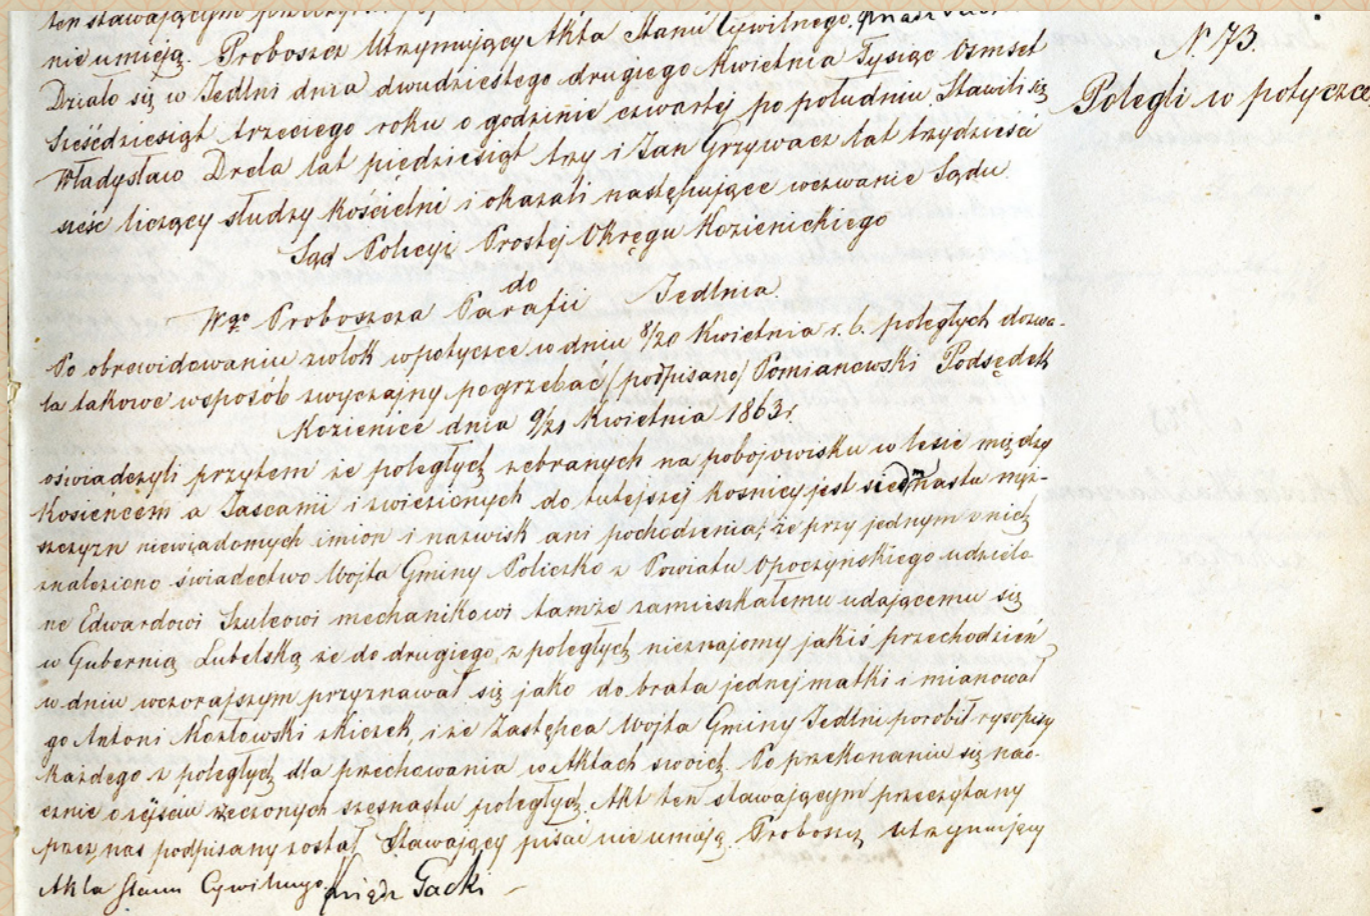 ten stawającym
nie umieją. Proboszcz Utrzymujący Akta Stanu Cywilnego.
N. 73.
Polegli w potyczce
Działo się w Jedlni dnia dwudziestego drugiego Kwietnia Tysiąc Osmset
Sześćdziesiąt trzeciego roku o godzinie czwartej po południu. Stawili się
Władysław Drela lat piędziesiąt trzy i Jan Grzywacz lat trzydzieści
sześć liczący słudzy Kościelni i okazali następujące wezwanie Sądu.
Sąd Policyi Prostej Okręgu Kozienickiego
do
Wgo Proboszcza Parafii Jedlnia
Po obrewidowaniu zwłok w potyczce w dniu 8/20 Kwietnia r. b. poległych dozwa-
la takowe w sposób zwyczajny pogrzebać (podpisano) Pomianowski Podsędek
Kozienice dnia 9/21 Kwietnia 1863 r
oświadczyli przytem że poległych zebranych na pobojowisku w lesie między
Kosieńcem a Jascami i zwiezionych do tutejszej kosnicy jest męż-
szczyzn niewiadomych imion i nazwisk ani pochodzenia, że przy jednym z nich
znaleziono świadectwo Wójta Gminy Policzko z Powiatu Opoczyńskiego udzielo-
ne Edwardowi Szulcowi mechanikowi tamże zamieszkałemu udającemu się
w Gubernią Lubelską że do drugiego z poległych nieznajomy jakiś przechodzień
w dniu wczorajszym przyznawał się jako do brata jednej matki i mianował
go Antoni Kozłowski z Kielck, i że Zastępca Wójta Gminy Jedlni porobił rysopisy
każdego z poległych dla przechowania w Aktach swoich. Po przekonaniu się nao-
cznie o zejściu rzeczonych szesnastu poległych. Akt ten stawającym przeczytany
przez nas podpisany został Stawający pisać nie umieją. Proboszcz Utrzymujący
Akta Stanu Cywilnego Xiądz Gacki